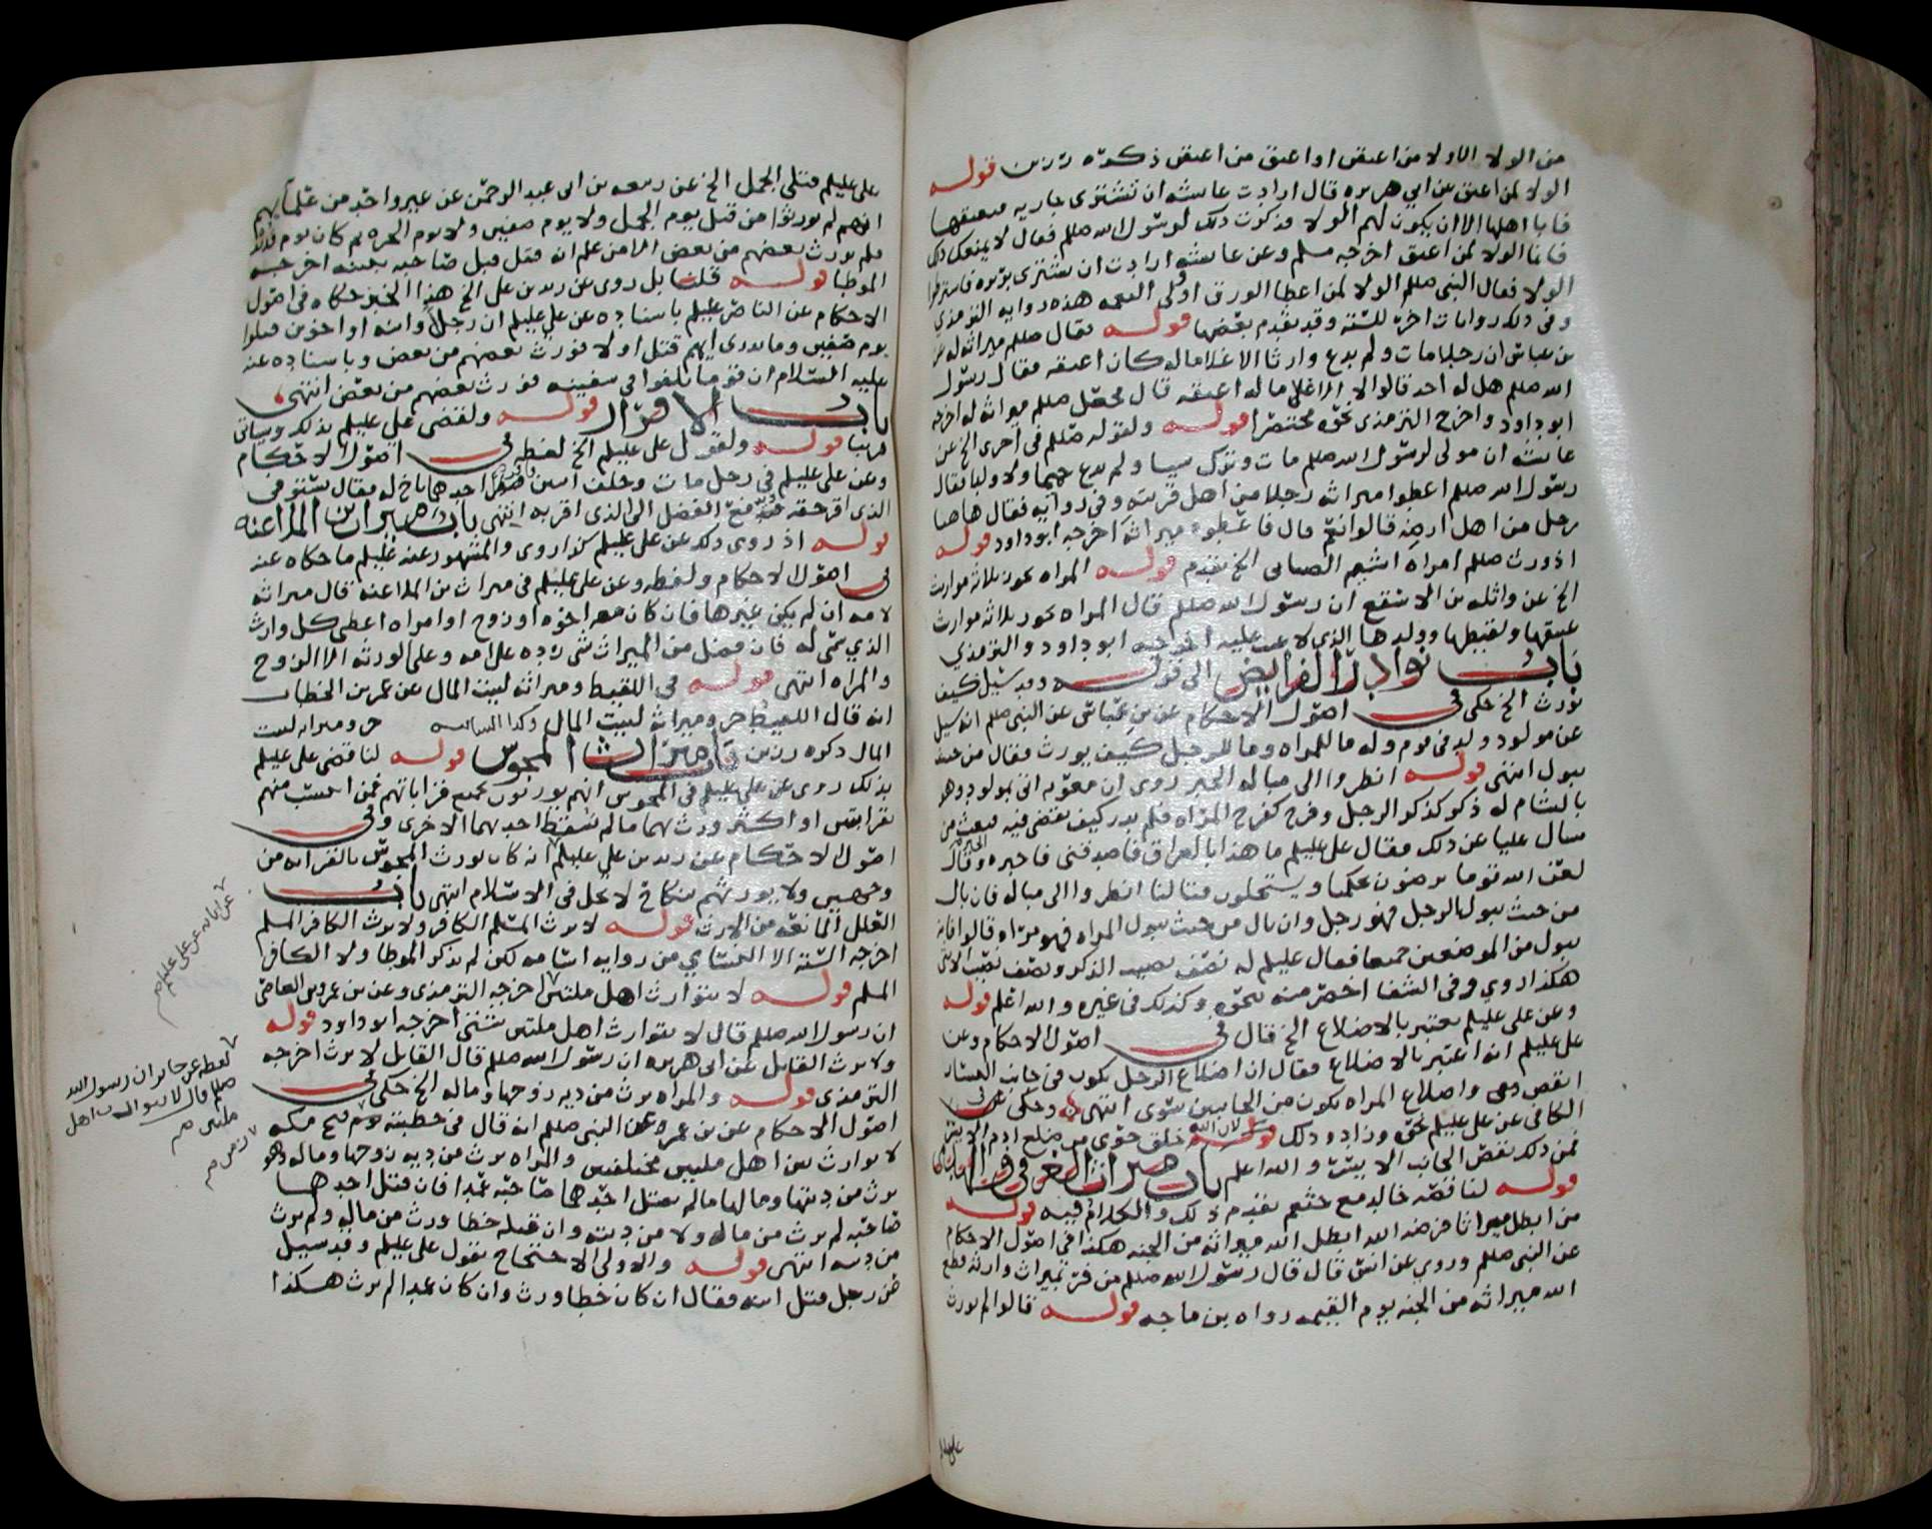 من الولا الا ولا من اعتق او اعتق من اعتق ذكره رزين قوله
الولا لمن اعتق عن ابي هريره قال ارادت عايشه ان تشترى جاريه فتعتقها
فابا اهلها الا ان يكون لهم الولا فذكرت ذلك لرسول الله صللم فقال لا يمنعك ذلك
فانما الولا لمن اعتق اخرجه مسلم وعن عايشه ارادت ان تشترى بريره فاشترطوا
الولا فقال النبي صللم الولا لمن اعطا الورق او ولى النعمه هذه روايه الترمذي
وفي ذلك روايات اخر للسته وقد تقدم بعضها قوله فقال صللم ميراثه له عن
بن عباس ان رجلا مات ولم يدع وارثا الا غلاما له كان اعتقه فقال رسول
الله صللم هل له احد قالوا لا الا غلاما له اعتقه قال فجعل صللم ميراثه له اخرجه
ابو داود واخرج الترمذي نحوه مختصرا قوله ولقوله صللم في اخرى الخ عن
عايشه ان مولى لرسول الله صللم مات وترك شيا ولم يدع حميما ولا وليا فقال
رسول الله صللم اعطوا ميراثه رجلا من اهل قريته وفي روايه فقال هاهنا
رجل من اهل ارضه قالوا نعم قال فاعطوه ميراثه اخرجه ابو داود قوله
اذ ورث صللم امراه اشيم الضبابي الخ تقدم قوله المراه تحوز ثلاثه مواريث
الخ عن واثله بن الاسقع ان رسول الله صللم قال المراه تحوز ثلاثه مواريث
عتيقها ولقيطها وولدها الذي لاعنت عليه اخرجه ابو داود والترمذي
باب نوادر الفرايض الى قوله وقد سيل كيف
يورث الخ حكى في اصول الاحكام عن بن عباس عن النبي صللم انه سيل
عن مولود ولد في قوم وله ما للمراه وما للرجل كيف يورث فقال من حيث
يبول انتهى قوله انظروا الى مباله الخبر روى ان معويه اتي بمولود وهو
بالشام له ذكر كذكر الرجل وفرج كفرج المراه فلم يدر كيف يقضي فيه فبعث من
سال عليا عن ذلك فقال علي عليلم ما هذا بالعراق فاصدقني فاخبره وقال
لعن الله قوما يرضون بحكمنا ويستحلون قتالنا انظروا الى مباله فان بال
من حيث يبول الرجل فهو رجل وان بال من حيث يبول المراه فهو مراه قالوا فانه
يبول من الموضعين جميعا فقال عليلم له نصف نصيب الذكر ونصف نصيب الانثى
هكذا روي وفي الشفا اخصر منه نحوه وكذلك في غيره والله اعلم قوله
وعن علي عليلم يعتبر بالاضلاع الخ قال في اصول الاحكام وعن
علي عليلم انه اعتبر بالاضلاع فقال ان اضلاع الرجل يكون في جانب اليسار
انقص وهي واضلاع المراه يكون من الجانبين سوى انتهى وحكى في
الكافي عن علي عليلم نحوه وزاد وذلك لان الله خلق حوى من ضلع ادم الايسر
فمن ذلك نقص الجانب الايسر والله اعلم باب ميراث الغرقى والهدمى
قوله لنا قصه خالد مع خثعم تقدم ذلك والكلام فيه قوله
من ابطل ميراثا فرضه الله ابطل الله ميراثه من الجنه هكذا في اصول الاحكام
عن النبي صللم وروي عن انس قال قال رسول الله صللم من فر بميراث وارثه قطع
الله ميراثه من الجنه يوم القيمه رواه بن ماجه قوله قالوا لم يورث
علي عليلم قتلى الجمل الخ عن ربيعه بن ابي عبد الرحمن عن غير واحد من علمايهم
انهم لم يورثوا من قتل يوم الجمل ولا يوم صفين ولا يوم الحره ثم كان يوم قديد
فلم يورث بعضهم من بعض الا من علم انه قتل قبل صاحبه ببينه اخرجه
الموطا قوله قلنا بل روى عن زيد بن علي الخ هذا الخبر حكاه في اصول
الاحكام عن الناصر عليلم باسناده عن علي عليلم ان رجلا وابنه او اخوين قتلوا
يوم صفين وما يدرى ايهم قتل اولا فورث بعضهم من بعض وباسناده عنه
عليه السلام ان قوما تلفوا في سفينه فورث بعضهم من بعض انتهى
باب الاقرار قوله ولقضى علي عليلم بذلك وسياتي
قريبا قوله ولقول علي عليلم الخ لفظه في اصول الاحكام
وعن علي عليلم في رجل مات وخلف ابنين فاقر احدهما باخ له فقال يستوفي
الذي اقر حقه ويدفع الفضل الى الذي اقر به انتهى باب ميراث ابن الملاعنه
قوله اذ روى ذلك عن علي عليلم كذا روى والمشهور عنه عليلم ما حكاه عنه
في اصول الاحكام ولفظه وعن علي عليلم في ميراث بن الملاعنه قال ميراثه
لامه ان لم يكن غيرها فان كان معها اخوه او زوج او امراه اعطى كل وارث
الذي سمى له فان فضل من الميراث شى رده على امه وعلى الورثه الا الزوج
والمراه انتهى قوله في اللقيط وميراثه لبيت المال عن عمر بن الخطاب
انه قال اللقيط حر وميراثه لبيت المال وكذا السايبه حر وميراثه لبيت
المال ذكره رزين باب ميراث المجوس قوله لنا قضى علي عليلم
بذلك روى عن علي عليلم في المجوس انهم يورثون بجميع قراباتهم فمن انتسب منهم
بقرابتين او اكثر ورث بهما ما لم تسقط احديهما الاخرى وفي
اصول الاحكام عن زيد بن علي عليلم انه كان يورث المجوس بالقرابه من
وجهين ولا يورثهم بنكاح لا يحل في الاسلام انتهى باب
العلل المانعه من الارث قوله لا يرث المسلم الكافر ولا يرث الكافر المسلم
اخرجه السته الا النساي من روايه اسامه لكن لم يذكر الموطا ولا الكافر
المسلم قوله لا يتوارث اهل ملتين اخرجه الترمذي وعن بن عمرو بن العاص
ان رسول الله صللم قال لا يتوارث اهل ملتين شتى اخرجه ابو داود قوله
ولا يرث القاتل عن ابي هريره ان رسول الله صللم قال القاتل لا يرث اخرجه
الترمذي قوله والمراه ترث من ديه زوجها وماله الخ حكى في
اصول الاحكام عن بن عمر عن النبي صللم انه قال في خطبته يوم فتح مكه
لا توارث بين اهل ملتين مختلفتين والمراه ترث من ديه زوجها وماله وهو
يرث من ديتها ومالها ما لم يقتل احدهما صاحبه عمدا فان قتل احدهما
صاحبه لم يرث من ماله ولا من ديته وان قتله خطا ورث من ماله ولم يرث
من ديته انتهى قوله والاولى الاحتجاج بقول علي عليلم وقد سيل
عن رجل قتل ابنه فقال ان كان خطا ورث وان كان عمدا لم يرث هكذا
لفظه عن جابر ان رسول الله
صللم قال لا يتوارث اهل
ملتين